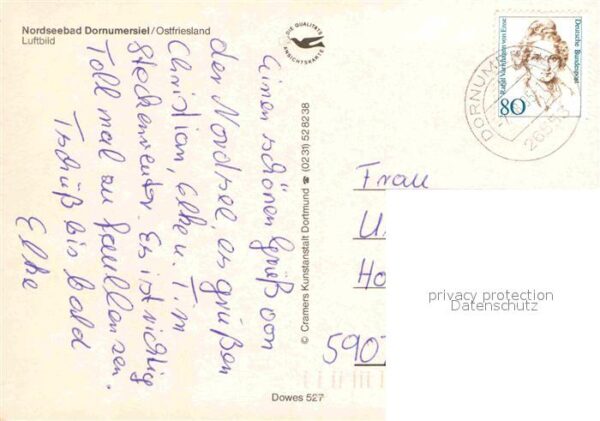 Nordseebad Dornumersiel/Ostfriesland
Luftbild
DIE QUALITÄTS
ANSICHTSKARTE
Einen schönen Gruß von
der Nordsee, es grüßen
Christian, Elke u. Tim
Es ist richtig
Toll mal zu faullenzen.
Tschüß bis bald
Elke
© Cramers Kunstanstalt Dortmund ☎ (0231) 528238
Dowes 527
Rahel Varnhagen von Ense
Deutsche Bundespost
80
DORNUM
Frau
U
Ho
5907
privacy protection
Datenschutz